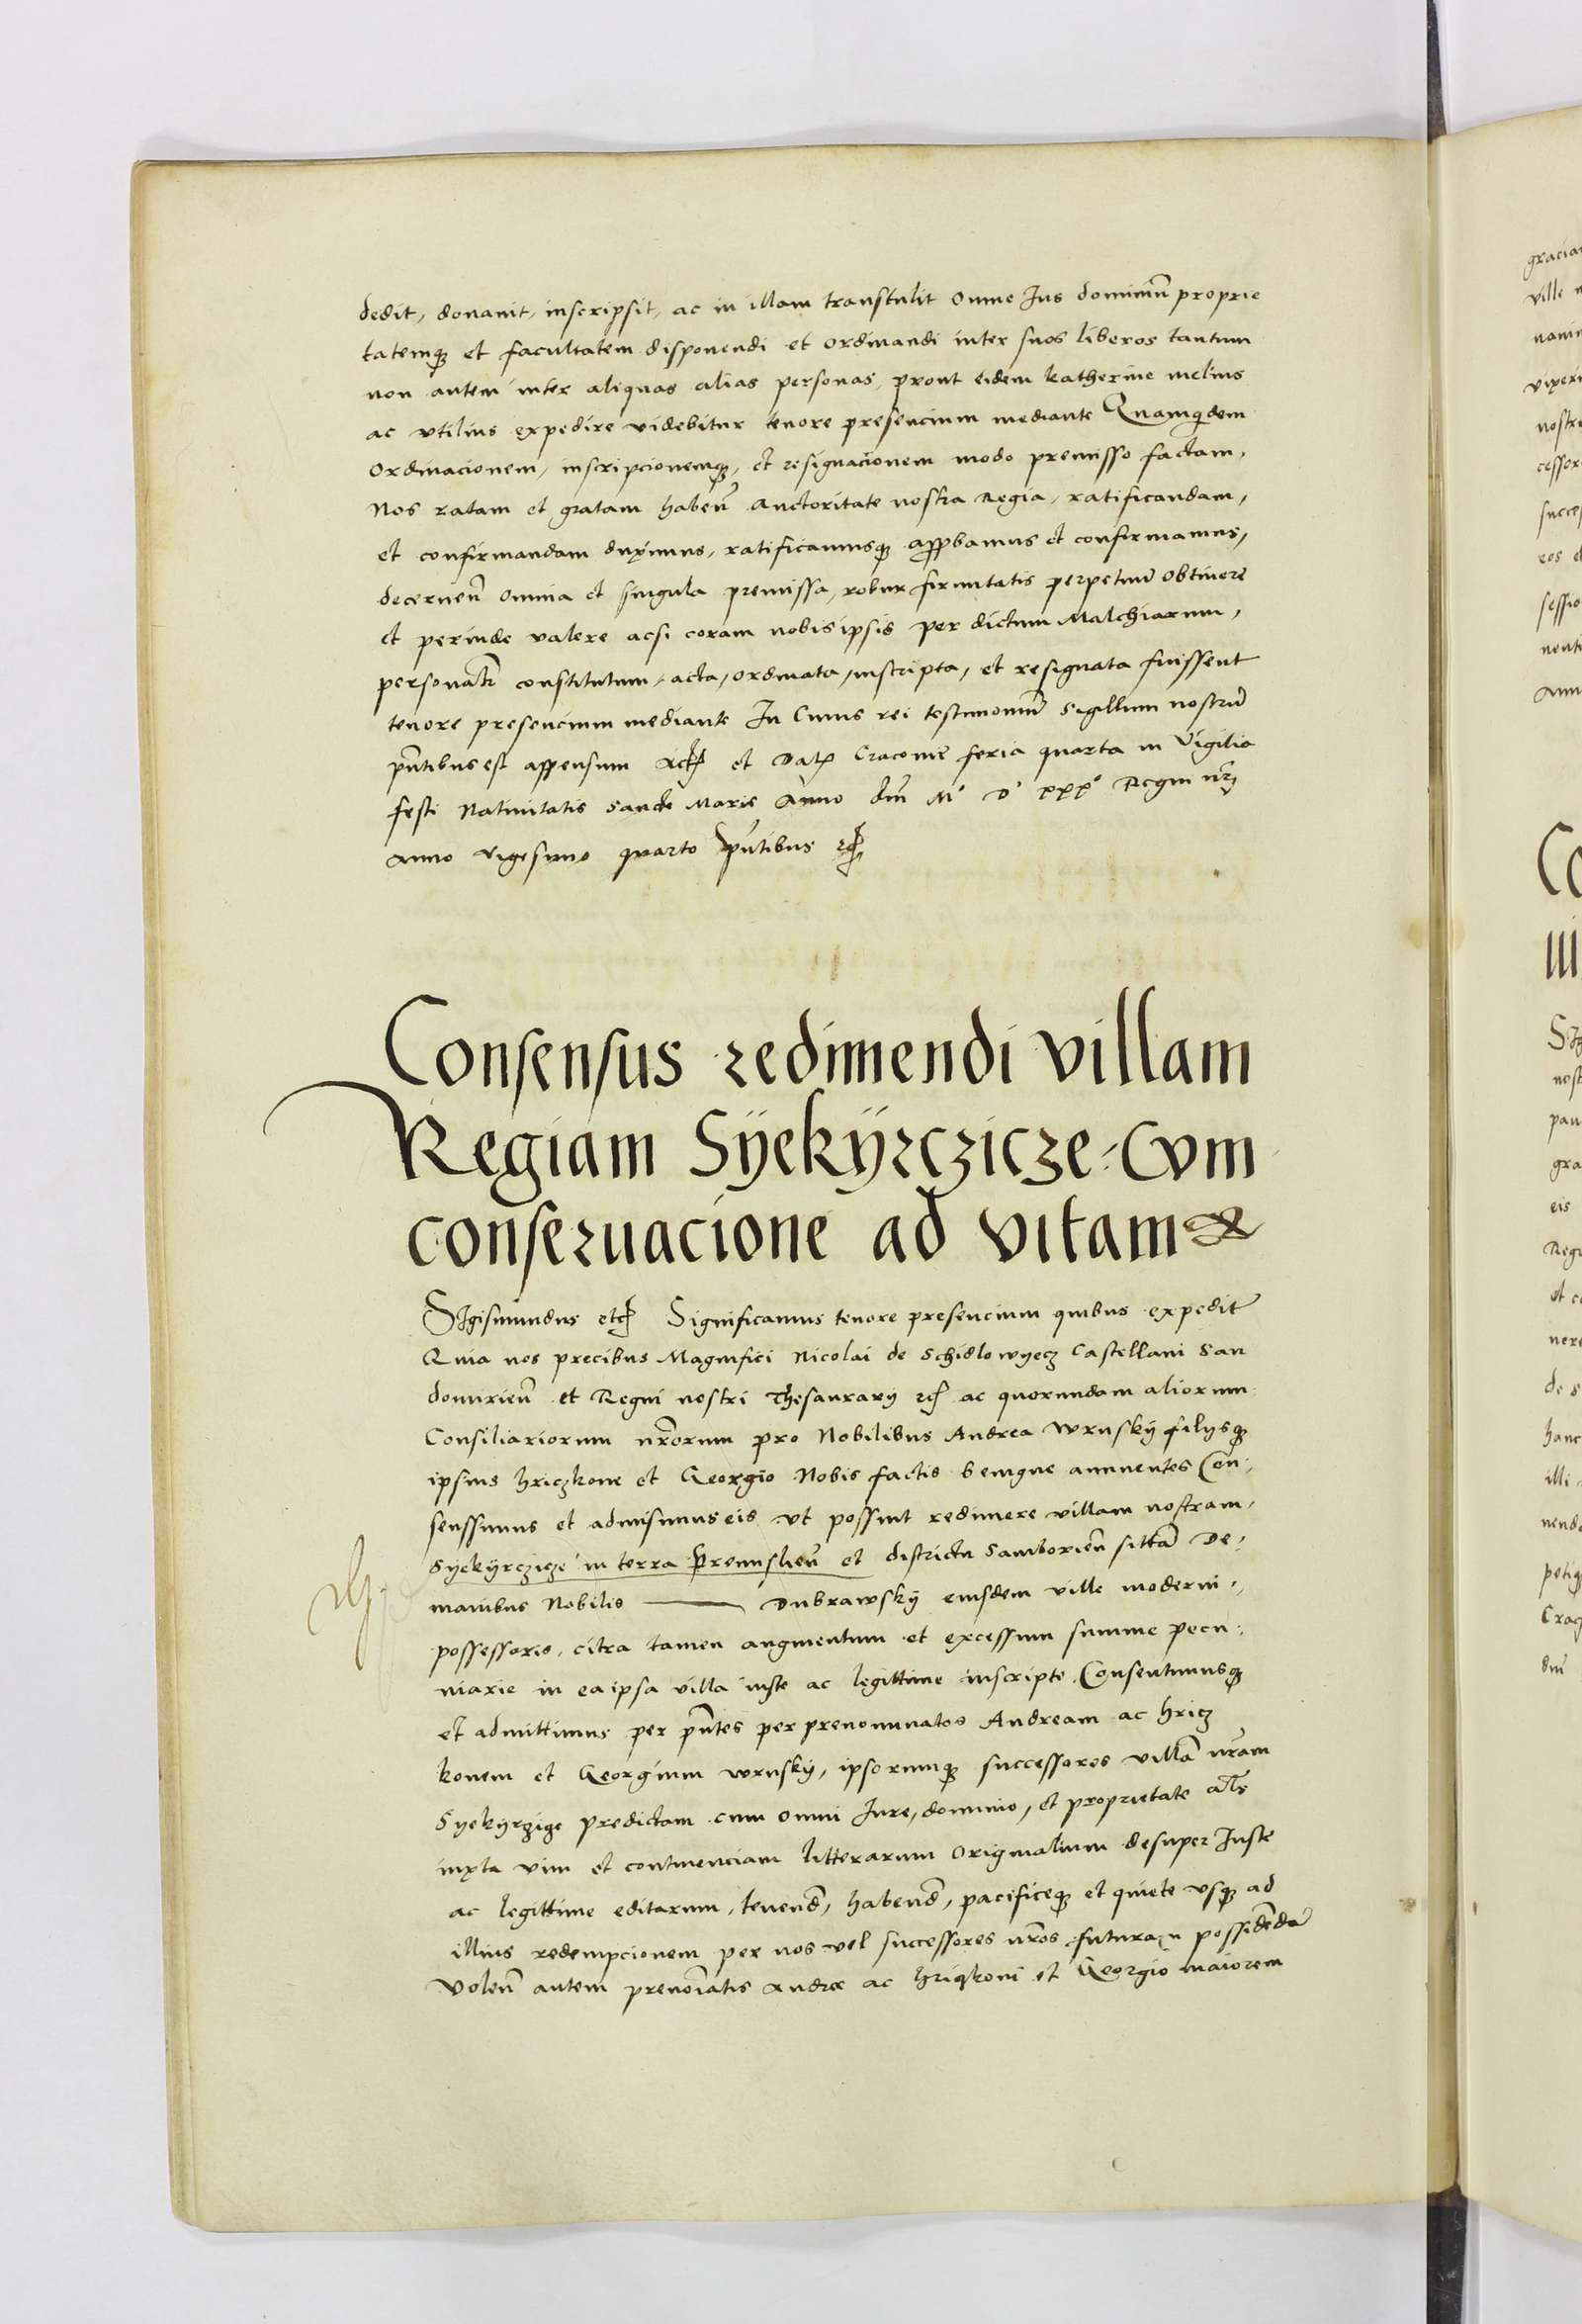 dedit, donauit, inscripsit, ac in illam transtulit omne Ius dominiũ proprie
tatemqȝ et facultatem disponendi et ordinandi inter suos liberos tantum
non autem inter aliquas alias personas, prout eidem katherine melius
ac vtilius expedire videbitur tenore presencium mediante Quamqdem
Ordinacionem, inscripcionemqȝ, et resignacionem modo premisso factam,
Nos ratam et gratam habeñ auctoritate nostra Regia, ratificandam,
et confirmandam duximus, ratificamusqȝ appbamus et confirmamus,
decerneñ omnia et singula premissa, robur firmitatis perpetuũ obtinere
et perinde valere acsi coram nobis ipsis per dictum Malchiarum,
personalr constitutum, acta, ordinata, inscripta, et resignata fuissent
tenore presencium mediante In Cuius rei testimoniũ Sigillum nostrũ
pñtibus est appensum Act et Datꝭ Cracouie feria quarta in Vigilia
festi Natiuitatis Sancte Marie Anno dñi M° D° xxx° Regni nrĩ
anno vigesimo quarto pñtibus etc
Consensus redimendi villam
Regiam Sÿekÿrczicze Cvm
conseruacione ad vitam
SIgismundus etc Significamus tenore presencium quibus expedit
Quia nos precibus Magnifici Nicolai de Schidlowyecz Castellani San
domirieñ et Regni nostri Thesaurarÿ etc ac quorundam aliorum
Consiliariorum nr̃orum pro Nobilibus Andrea Wrusky filÿsqȝ
ipsius hriczkone et Georgio Nobis factis benigne annuentes Con
senssimus et admisimus eis vt possint redimere villam nostram,
Syekÿrczicze in terra Premislieñ et districtu Samborieñ sittã De
manibus Nobilis — Dubrawsky eiusdem ville moderni
possessoris, citra tamen augmentum et excessum summe pecu
niarie in ea ipsa villa iuste ac legittime inscripte Consentimusqȝ
et admittimus per pñtes per prenominatos Andream ac hricz
konem et Georgium wrusky, ipsorumqȝ successores villã nr̃am
Syekyrzicze predictam cum omni Iure, dominio, et proprietate als
iuxta vim et continenciam litterarum originalium desuper Iuste
ac legittime editarum, tenend, habend, pacificeqȝ et quiete vsqȝ ad
illius redempcionem per nos vel successores nr̃os futuram possidendã
Voleñ autem prenoĩatis Andree ac hriczkoni et Georgio maiorem